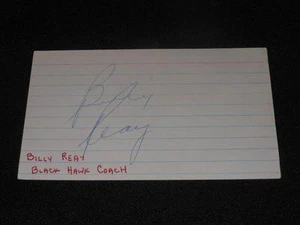 Billy
Reay
BILLY REAY
BLACK HAWK COACH